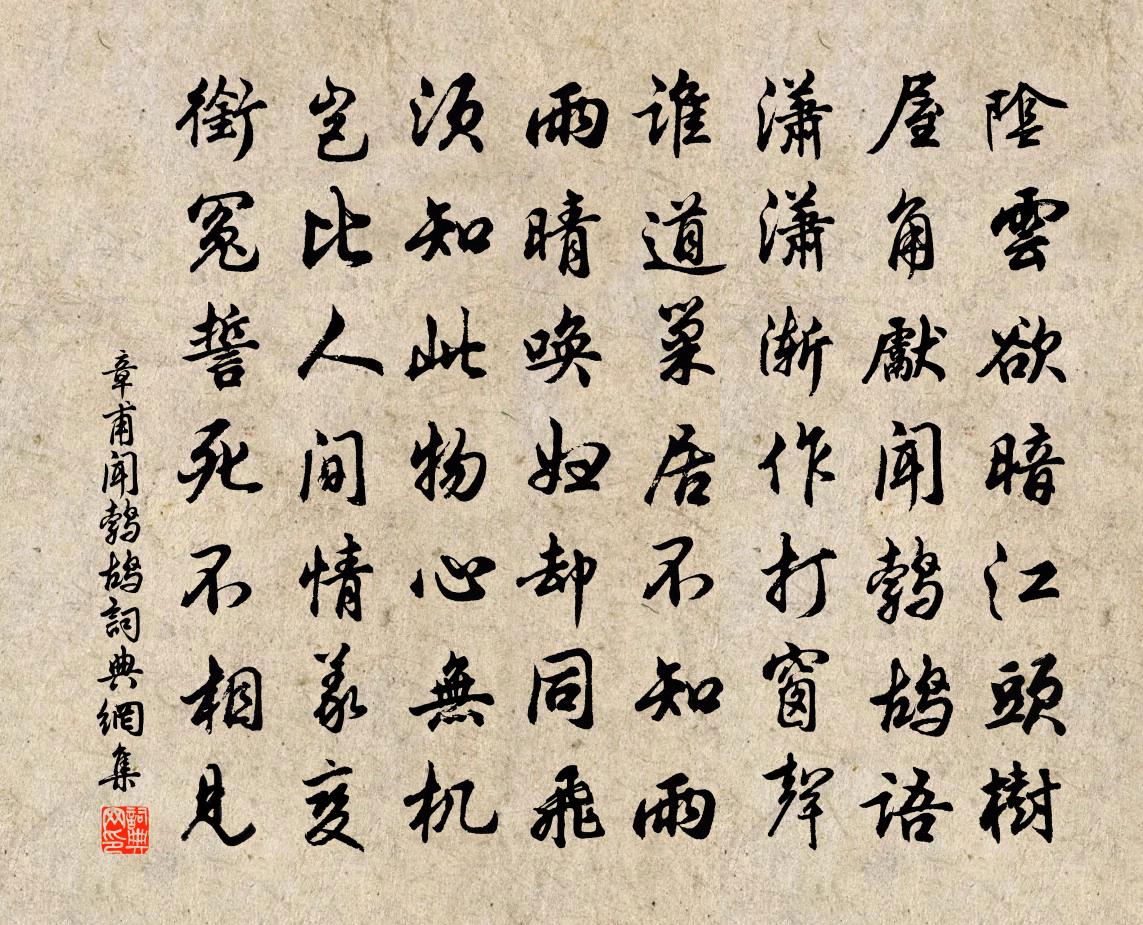 陰雲欲暗江頭樹
屋角獻聞鵓鴣語
瀟瀟漸作打窗聲
誰道巢居不知雨
雨晴喚妇却同飛
須知此物心無机
豈比人間情義变
銜冤誓死不相見
章甫聞鵓鴣詞典網集
詞典网印